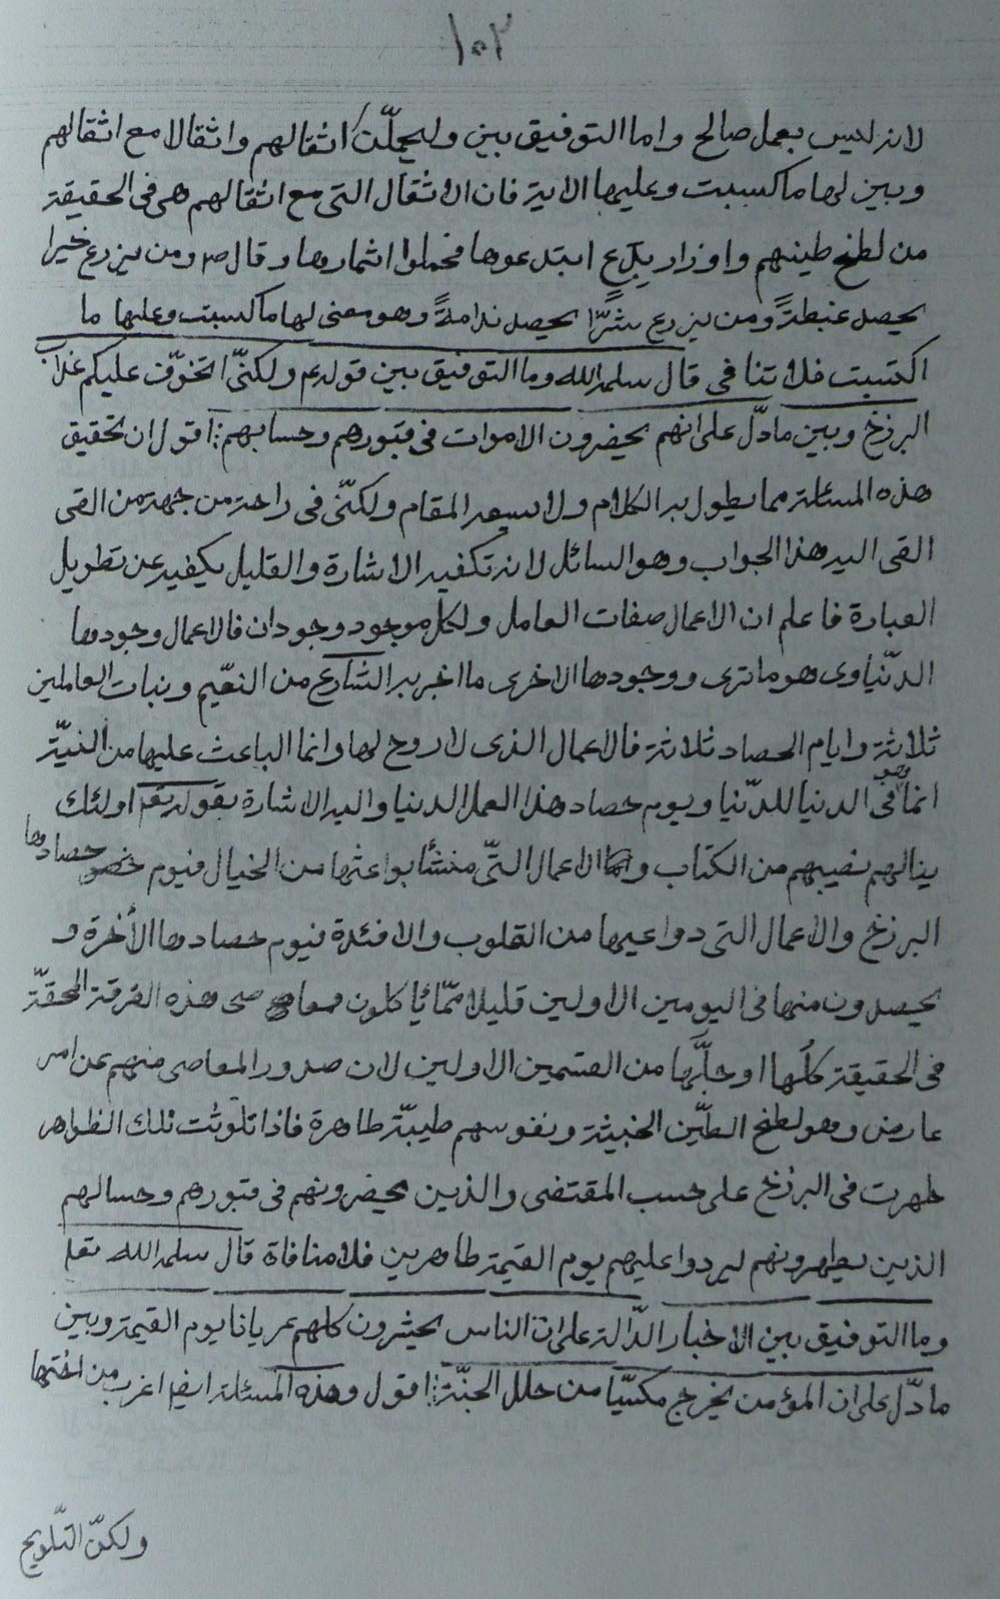 ١٠٢
لانه ليس بعمل صالح واما التوفيق بين وليحملنّ اثقالهم واثقالا مع اثقالهم
وبين لها ما كسبت وعليها الاية فان الاثقال التى مع اثقالهم هى فى الحقيقة
من لطخ طينهم واوزار بدع ابتدعوها فحملوا اثمارها وقال ص ومن يزرع خيرا
يحصد غبطةً ومن يزرع شرّا يحصد ندامةً وهو معنى لها ما كسبت وعليها ما
اكتسبت فلا تنافى قال سلمه الله وما التوفيق بين قوله ع ولكنّى اتخوّف عليكم عذاب
البرزخ وبين ما دلّ على انهم يحضرون الاموات فى قبورهم وحسابهم : اقول ان تحقيق
هذه المسئلة مما يطول به الكلام ولا يسعه المقام ولكنّى فى راحة من جهة من القى
القى اليه هذا الجواب وهو السائل لانه تكفيه الاشارة والقليل يكفيه عن تطويل
العبارة فاعلم ان الاعمال صفات العامل ولكل موجود وجودان فالاعمال وجودها
الدّنياوى هو ما ترى ووجودها الاخرى ما اخبر به الشارع من النعيم ونيات العاملين
ثلاثة وايام الحصاد ثلاثة فالاعمال الذى لا روح لها وانما الباعث عليها من النيّة
انما هو فى الدنيا للدّنيا ويوم حصاد هذا العمل الدنيا واليه الاشارة بقوله تعالى اولئك
ينالهم نصيبهم من الكتاب واما الاعمال التّى منشأ بواعثها من الخيال فيوم حصادها
البرزخ والاعمال التى دواعيها من القلوب والافئدة فيوم حصادها الأخرة و
يحصدون منها فى اليومين الاولين قليلا ممّا يأكلون ومعاصى هذه الفرقة المحقّة
فى الحقيقة كلّها او جلّها من القسمين الاولين لان صدور المعاصى منهم عن امر
عارض وهو لطخ الطّين الخبيثة ونفوسهم طيبّة طاهرة فاذا تلوثت تلك الظواهر
طهرت فى البرزخ على حسب المقتضى والذين يحضرونهم فى قبورهم وحسابهم
الذين يطهرونهم ليردوا عليهم يوم القيمة طاهرين فلا منافاة قال سلمه الله تعالى
وما التوفيق بين الاخبار الدّالة على ان الناس يحشرون كلهم عريانا يوم القيمة وبين
ما دّل على ان المؤمن يخرج مكسيّا من حلل الجنّة : اقول وهذه المسئلة ايضا اغرب من اختها
ولكنّ التّلويح